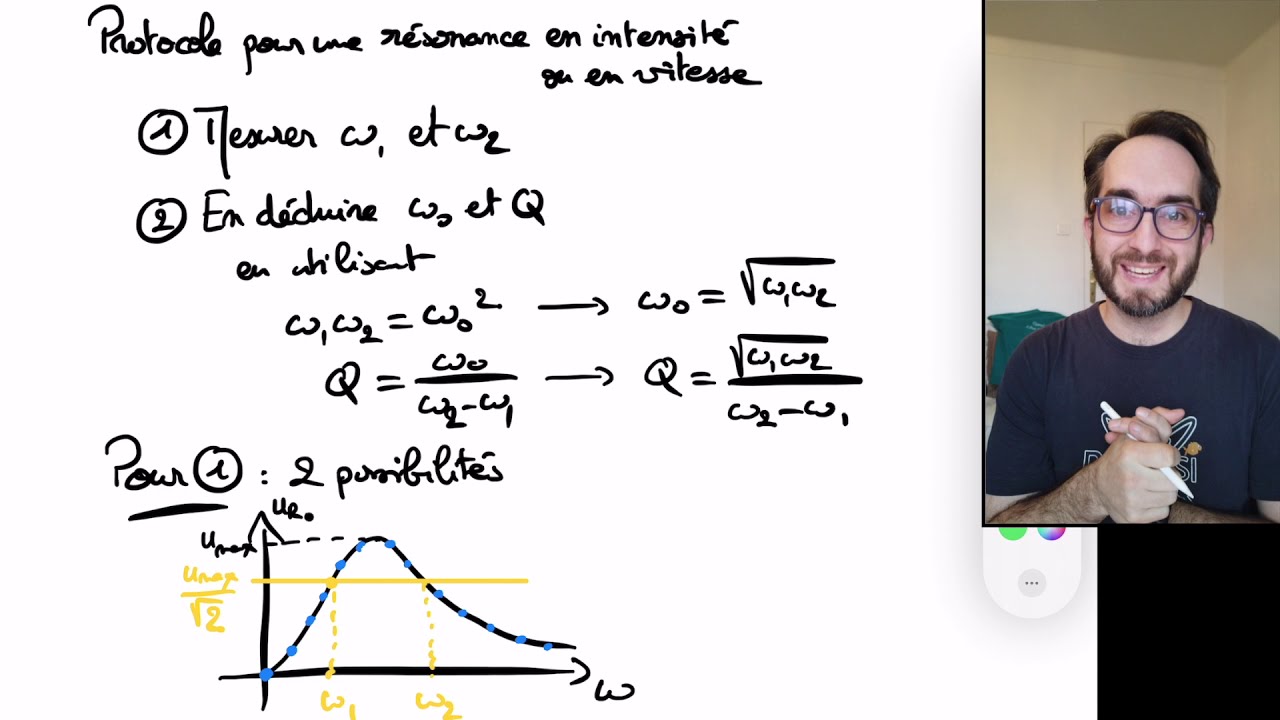 Protocole pour une résonance en intensité
ou en vitesse
① Mesurer ω₁ et ω₂
② En déduire ω₀ et Q
en utilisant
ω₁ω₂ = ω₀² → ω₀ = √(ω₁ω₂)
Q = ω₀/(ω₂-ω₁) → Q = √(ω₁ω₂)/(ω₂-ω₁)
Pour ① : 2 possibilités
u_R₀
u_max
u_max/√2
ω₁ ω₂ ω